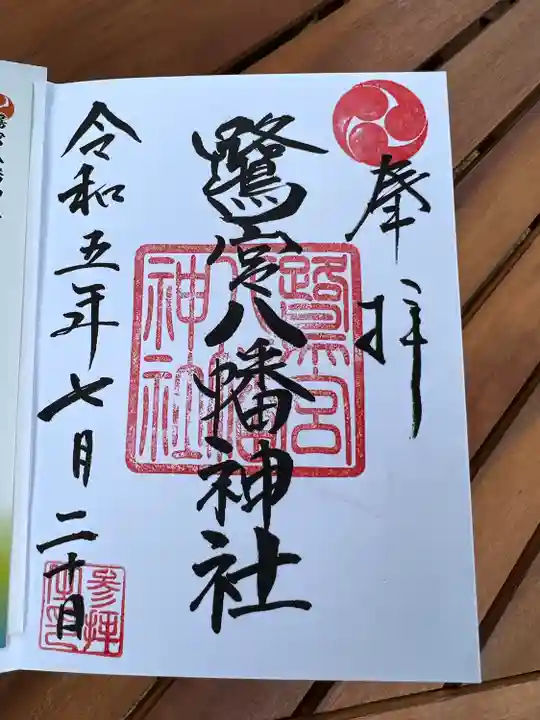 奉拝
鷺宮八幡神社
令和五年七月二十日
鷺宮
八幡
神社
参拝